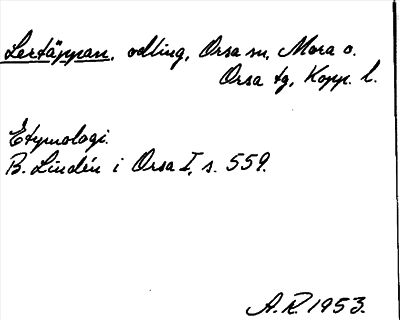 Lertäppan, odling, Orsa sn, Mora o.
Orsa tg, Kopp. l.
Etymologi.
B. Lindén i Orsa I, s. 559.
A.R. 1953.